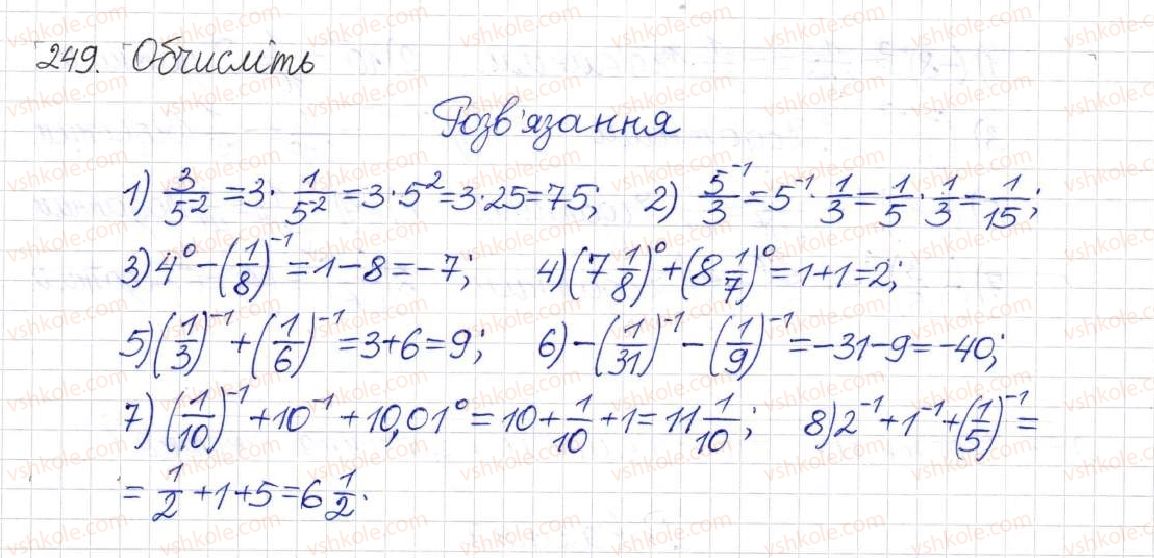 249. Обчисліть
Розв'язання
1) 3/5⁻² = 3 · 1/5⁻² = 3 · 5² = 3 · 25 = 75; 2) 5⁻¹/3 = 5⁻¹ · 1/3 = 1/5 · 1/3 = 1/15;
3) 4⁰ − (1/8)⁻¹ = 1 − 8 = −7; 4) (7 1/8)⁰ + (8 1/7)⁰ = 1 + 1 = 2;
5) (1/3)⁻¹ + (1/6)⁻¹ = 3 + 6 = 9; 6) −(1/31)⁻¹ − (1/9)⁻¹ = −31 − 9 = −40;
7) (1/10)⁻¹ + 10⁻¹ + 10,01⁰ = 10 + 1/10 + 1 = 11 1/10; 8) 2⁻¹ + 1⁻¹ + (1/5)⁻¹ =
= 1/2 + 1 + 5 = 6 1/2.